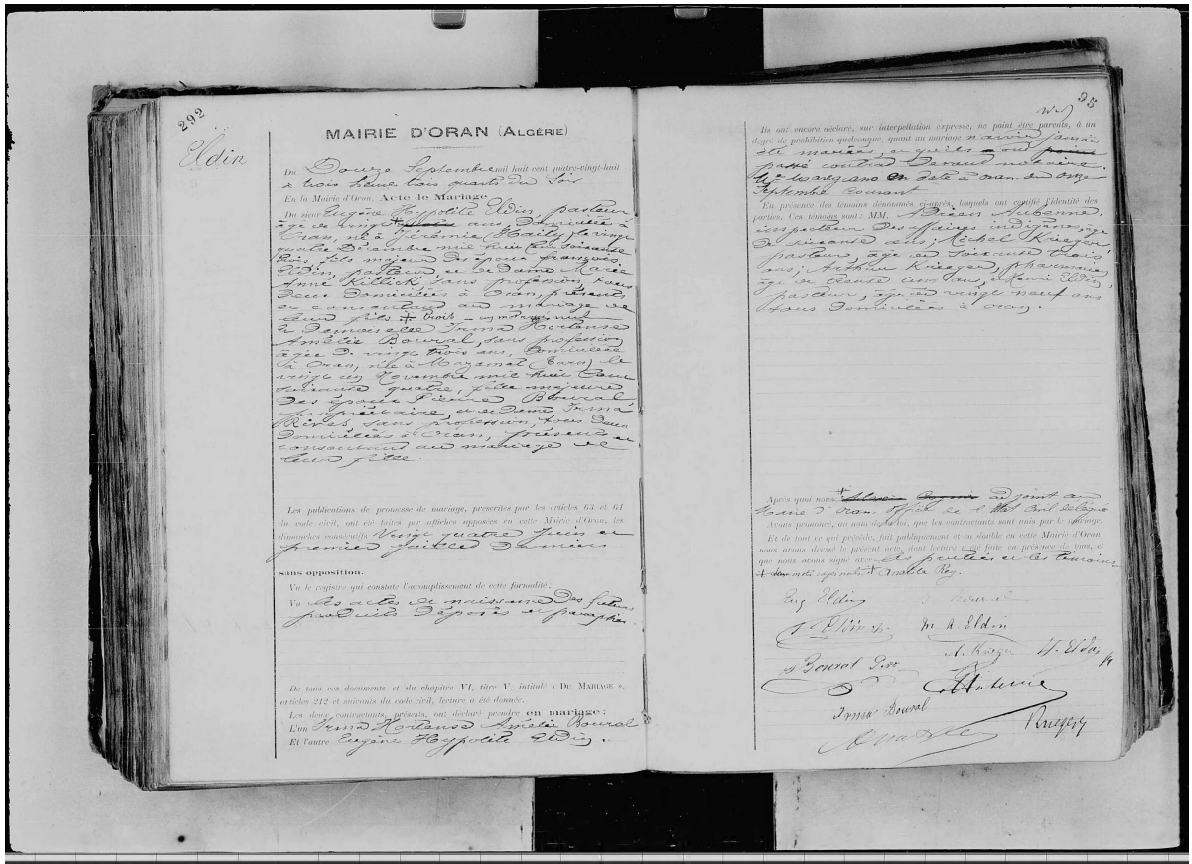 292
Eldin
MAIRIE D'ORAN (ALGÉRIE)
Du Douze Septembre mil huit cent quatre-vingt-huit
à trois heures trois quarts du soir
En la Mairie d'Oran, Acte de Mariage
Du sieur Eugène Hyppolite Eldin, pasteur
âgé de vingt ans, domicilié à
Oran, né à Jérémie (Haïty) le vingt
quatre Décembre mil huit cent soixante
trois, fils majeur des époux François
Eldin, pasteur, et de Dame Marie
Anne Killick, sans profession, tous
deux domiciliés à Oran, présents
et consentant au mariage de
leur fils ‡ trois - un mot rayé nul
Et Demoiselle Irma Hortense
Amélie Boural, sans profession
âgée de vingt trois ans, domiciliée
à Oran, née à Mazamet (Tarn) le
vingt un Novembre mil huit cent
soixante quatre, fille majeure
des époux Pierre Boural,
propriétaire, et de Dame Irma
Rives, sans profession, tous deux
domiciliés à Oran, présents et
consentant au mariage de
leur fille.
Les publications de promesse de mariage, prescrites par les articles 63 et 64
du code civil, ont été faites par affiches apposées en cette Mairie d'Oran, les
dimanches consécutifs Vingt quatre Juin et
premier Juillet derniers
sans opposition.
Vu le registre qui constate l'accomplissement de cette formalité;
Vu les actes de naissance des futurs
produits déposés et paraphés.
De tous ces documents et du chapitre VI, titre V, intitulé « DU MARIAGE »,
articles 212 et suivants du code civil, lecture a été donnée.
Les deux contractants, présents, ont déclaré prendre en mariage:
L'un Irma Hortense Amélie Boural
Et l'autre Eugène Hyppolite Eldin.
Ils ont encore déclaré, sur interpellation expresse, ne point être parents, à un
degré de prohibition quelconque, quant au mariage n'avoir jamais
été mariés, et qu'ils ont
passé contrat devant notaire
en date à Oran du onze
Septembre courant
En présence des témoins dénommés ci-après, lesquels ont certifié l'identité des
parties. Ces témoins sont: MM. Adrien Aubenne,
inspecteur des affaires indigènes, âgé
de soixante ans; Michel Krieger,
pasteur, âgé de soixante trois
ans; Arthur Krieger, pharmacien
âgé de trente cinq ans, et Henri Eldin,
pasteur, âgé de vingt neuf ans
tous domiciliés à Oran.
Après quoi nous ‡ adjoint au
Maire d'Oran, officier de l'état civil délégué
Avons prononcé, au nom de la loi, que les contractants sont unis par le mariage.
Et de tout ce qui précède, fait publiquement et au double en cette Mairie d'Oran
nous avons dressé le présent acte, dont lecture a été faite en présence de tous, et
que nous avons signé avec les parties et les témoins
‡ deux mots rayés nuls ‡ Anatole Rey.
Eug Eldin
I Boural
M. A. Eldin
A. Krieger
H. Eldin
Boural Père
Irma Boural
Krieger